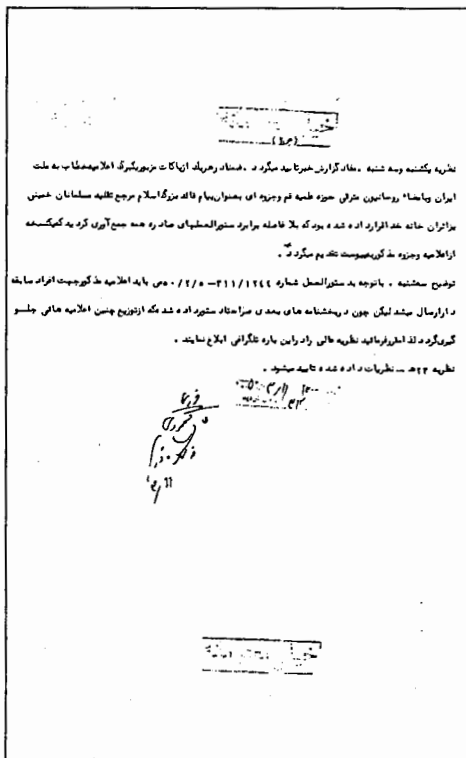 خیلی محرمانه
نظریه یکشنبه وسه شنبه . مفاد گزارش خبر تایید میگردد . ضمناً در هریک از پاکات مزبور یکبرگ اعلامیه خطاب به ملت
ایران وبامضاء روحانیون مترقی حوزه علمیه قم وجزوه ای بعنوان پیام قائد بزرگ اسلام مرجع تقلید مسلمانان خمینی
بزائران خانه خدا قرارداده شده بود که بلا فاصله برابر دستورالعملهای صادره همه جمع آوری گردید که یکنسخه
ازاعلامیه وجزوه مذکور بپیوست تقدیم میگردد .
توضیح سه شنبه . باتوجه به دستورالعمل شماره ۳۱۱/۱۲۴۴-۵۰/۲/۵ می باید اعلامیه مذکور جهت افراد سابقه
دار ارسال میشد لیکن چون در بخشنامه های بعدی صراحتاً دستور داده شده که ازتوزیع چنین اعلامیه هائی جلو
گیری گردد لذا امر فرمائید نظریه عالی را در این باره تلگرافی ابلاغ نمایند .
نظریه ۲۳ ه‍ ـ نظریات داده شده تایید میشود .
خیلی محرمانه